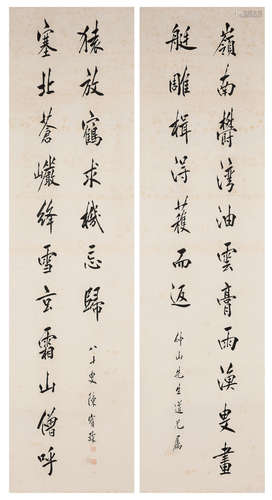 嶺南欝灣油雲膏雨漁叟畫
艇雕楫得蒦而返
仲山先生道兄属
塞北蒼巘絳雪玄霜山僧呼
猿放鶴求機忘歸
八十叟陳寶琛